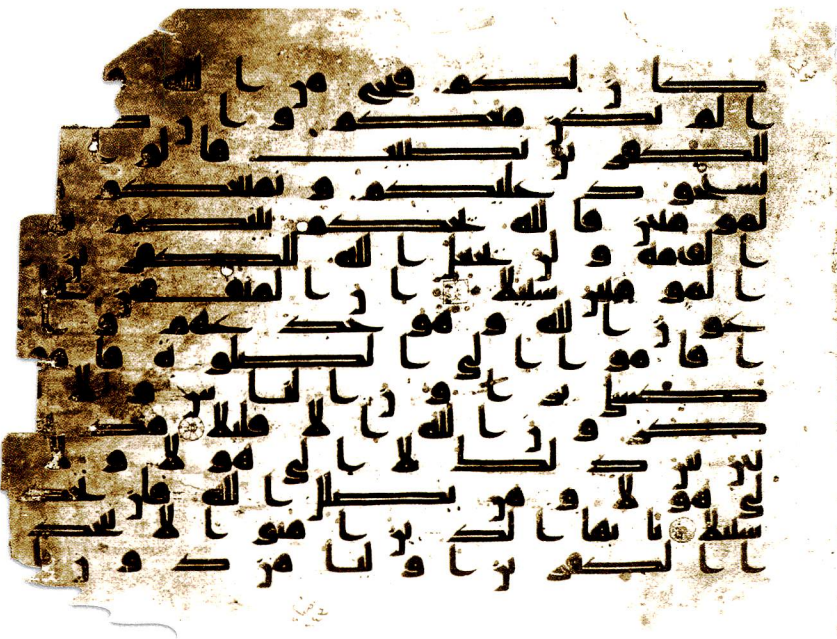 كان لكم فتح من الله
الم نكن معكم و ان كا
للكفرين نصيب قالوا
نستحوذ عليكم و نمنعكم
لمو منين فالله يحكم بينكم
القيمة و لن يجعل الله للكفرين
المو منين سبيلا ان المنفقين
عون الله و هو خدعهم و
ا قاموا الى الصلوه قامو
كسلى يراون الناس و لا
يذكرون الله الا قليلا مذ
بين بين ذلك لا الى هولا و لا
الى هولا و من يضلل الله فلن تجد
سبيلا يايها الذين امنوا لا تتخذ
وا الكفرين اوليا من دون ا